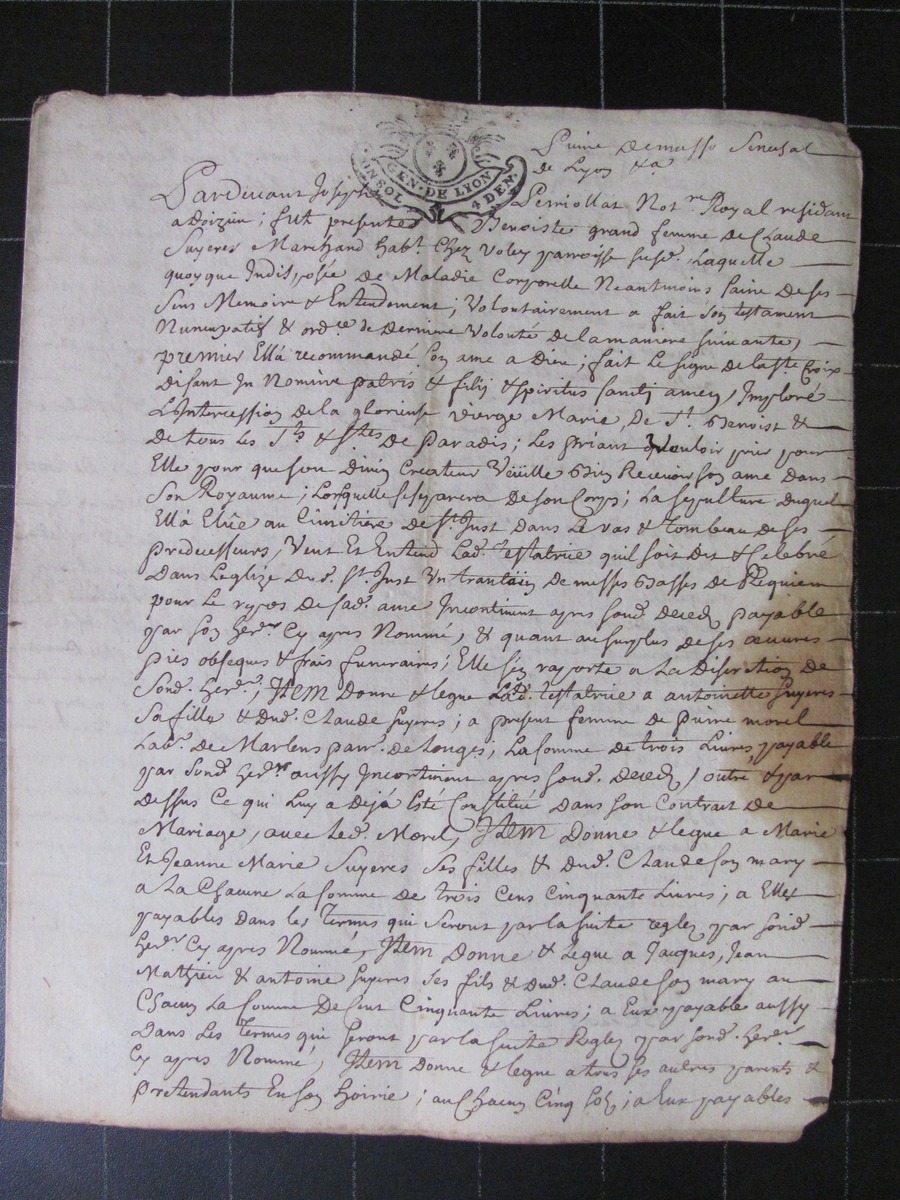 GEN. DE LYON
UN SOL 4 DEN.
de Lyon &a
Pardevant Joseph Perriollat Notre Royal residant
a Doizieu ; fut presente Benoiste grand femme de Claude
Suyeres Marchand habt. Chez Voley parroisse susd. Laquelle
quoyque Indisposée de Maladie Corporelle Neantmoins saine de ses
sens Memoire & Entendement ; Volontairement a fait son testament
Nuncupatif & ordce de Derniere Volonté de la maniere suivante,
premier Ell'a recommandé son ame a Dieu ; fait Le signe de la Ste Croix
Disant In Nomine patris & filij & spiritus sancti amen, Imploré
L'Intercession de la glorieuse vierge Marie, De St. Benoist &
de tous Les Sts & Stes de Paradis ; Les priant vouloir prier pour
Elle pour que son Divin Createur Veüille Bien Recevoir son ame dans
Son Royaume ; Lorsquelle se separera De son Corps ; La sepulture Duquel
Ell'a Elûe au Cimitiere de St. Just dans Le vas & tombeau de ses
predecesseurs, Veut Et Entend Lad. Testatrice quil soit dit & Celebré
Dans Leglize Dud. St. Just Un trantain De messes Basses de Requiem
pour Le repos de sad. ame Incontinent apres sond. Deced payable
par son herer. Cy apres Nommé, & quant au surplus de ses œuvres
pies obseques & frais funeraires ; Elle sen raporte a La Discretion De
Sond. herer. ; Item Donne & legue Lad. Testatrice a antoinette Suyeres
Sa fille & Dud. Claude Suyeres ; a present femme de pierre morel
Labr. de Marlens parr. de Longes, La somme de trois Livres, payable
par Sond. herer. aussy Incontinent apres sond. Deced, outre & par
dessus Ce qui Luy a Dejà Esté Constitué dans son Contrait de
Mariage, avec Led. Morel, Item Donne & legue a Marie
Et Jeanne Marie Suyeres Ses filles & Dud. Claude son mary
a La Chacune La somme De trois Cens Cinquante Livres ; a Elles
payables Dans les Termes qui Seront par la suite reglez par sond.
herer. Cy apres Nommé, Item Donne & Legue a Jacques, Jean
Mathieu & antoine Suyeres Ses fils & Dud. Claude son mary au
Chacun La somme De Cent Cinquante Livres ; a Eux payable aussy
Dans Les Termes qui Seront par la suite Reglez par Sond. herer.
Cy apres Nommé, Item Donne & legue a tous ses autres parents &
Pretendants En son hoirie ; au Chacun Cinq Sols ; a Eux payables